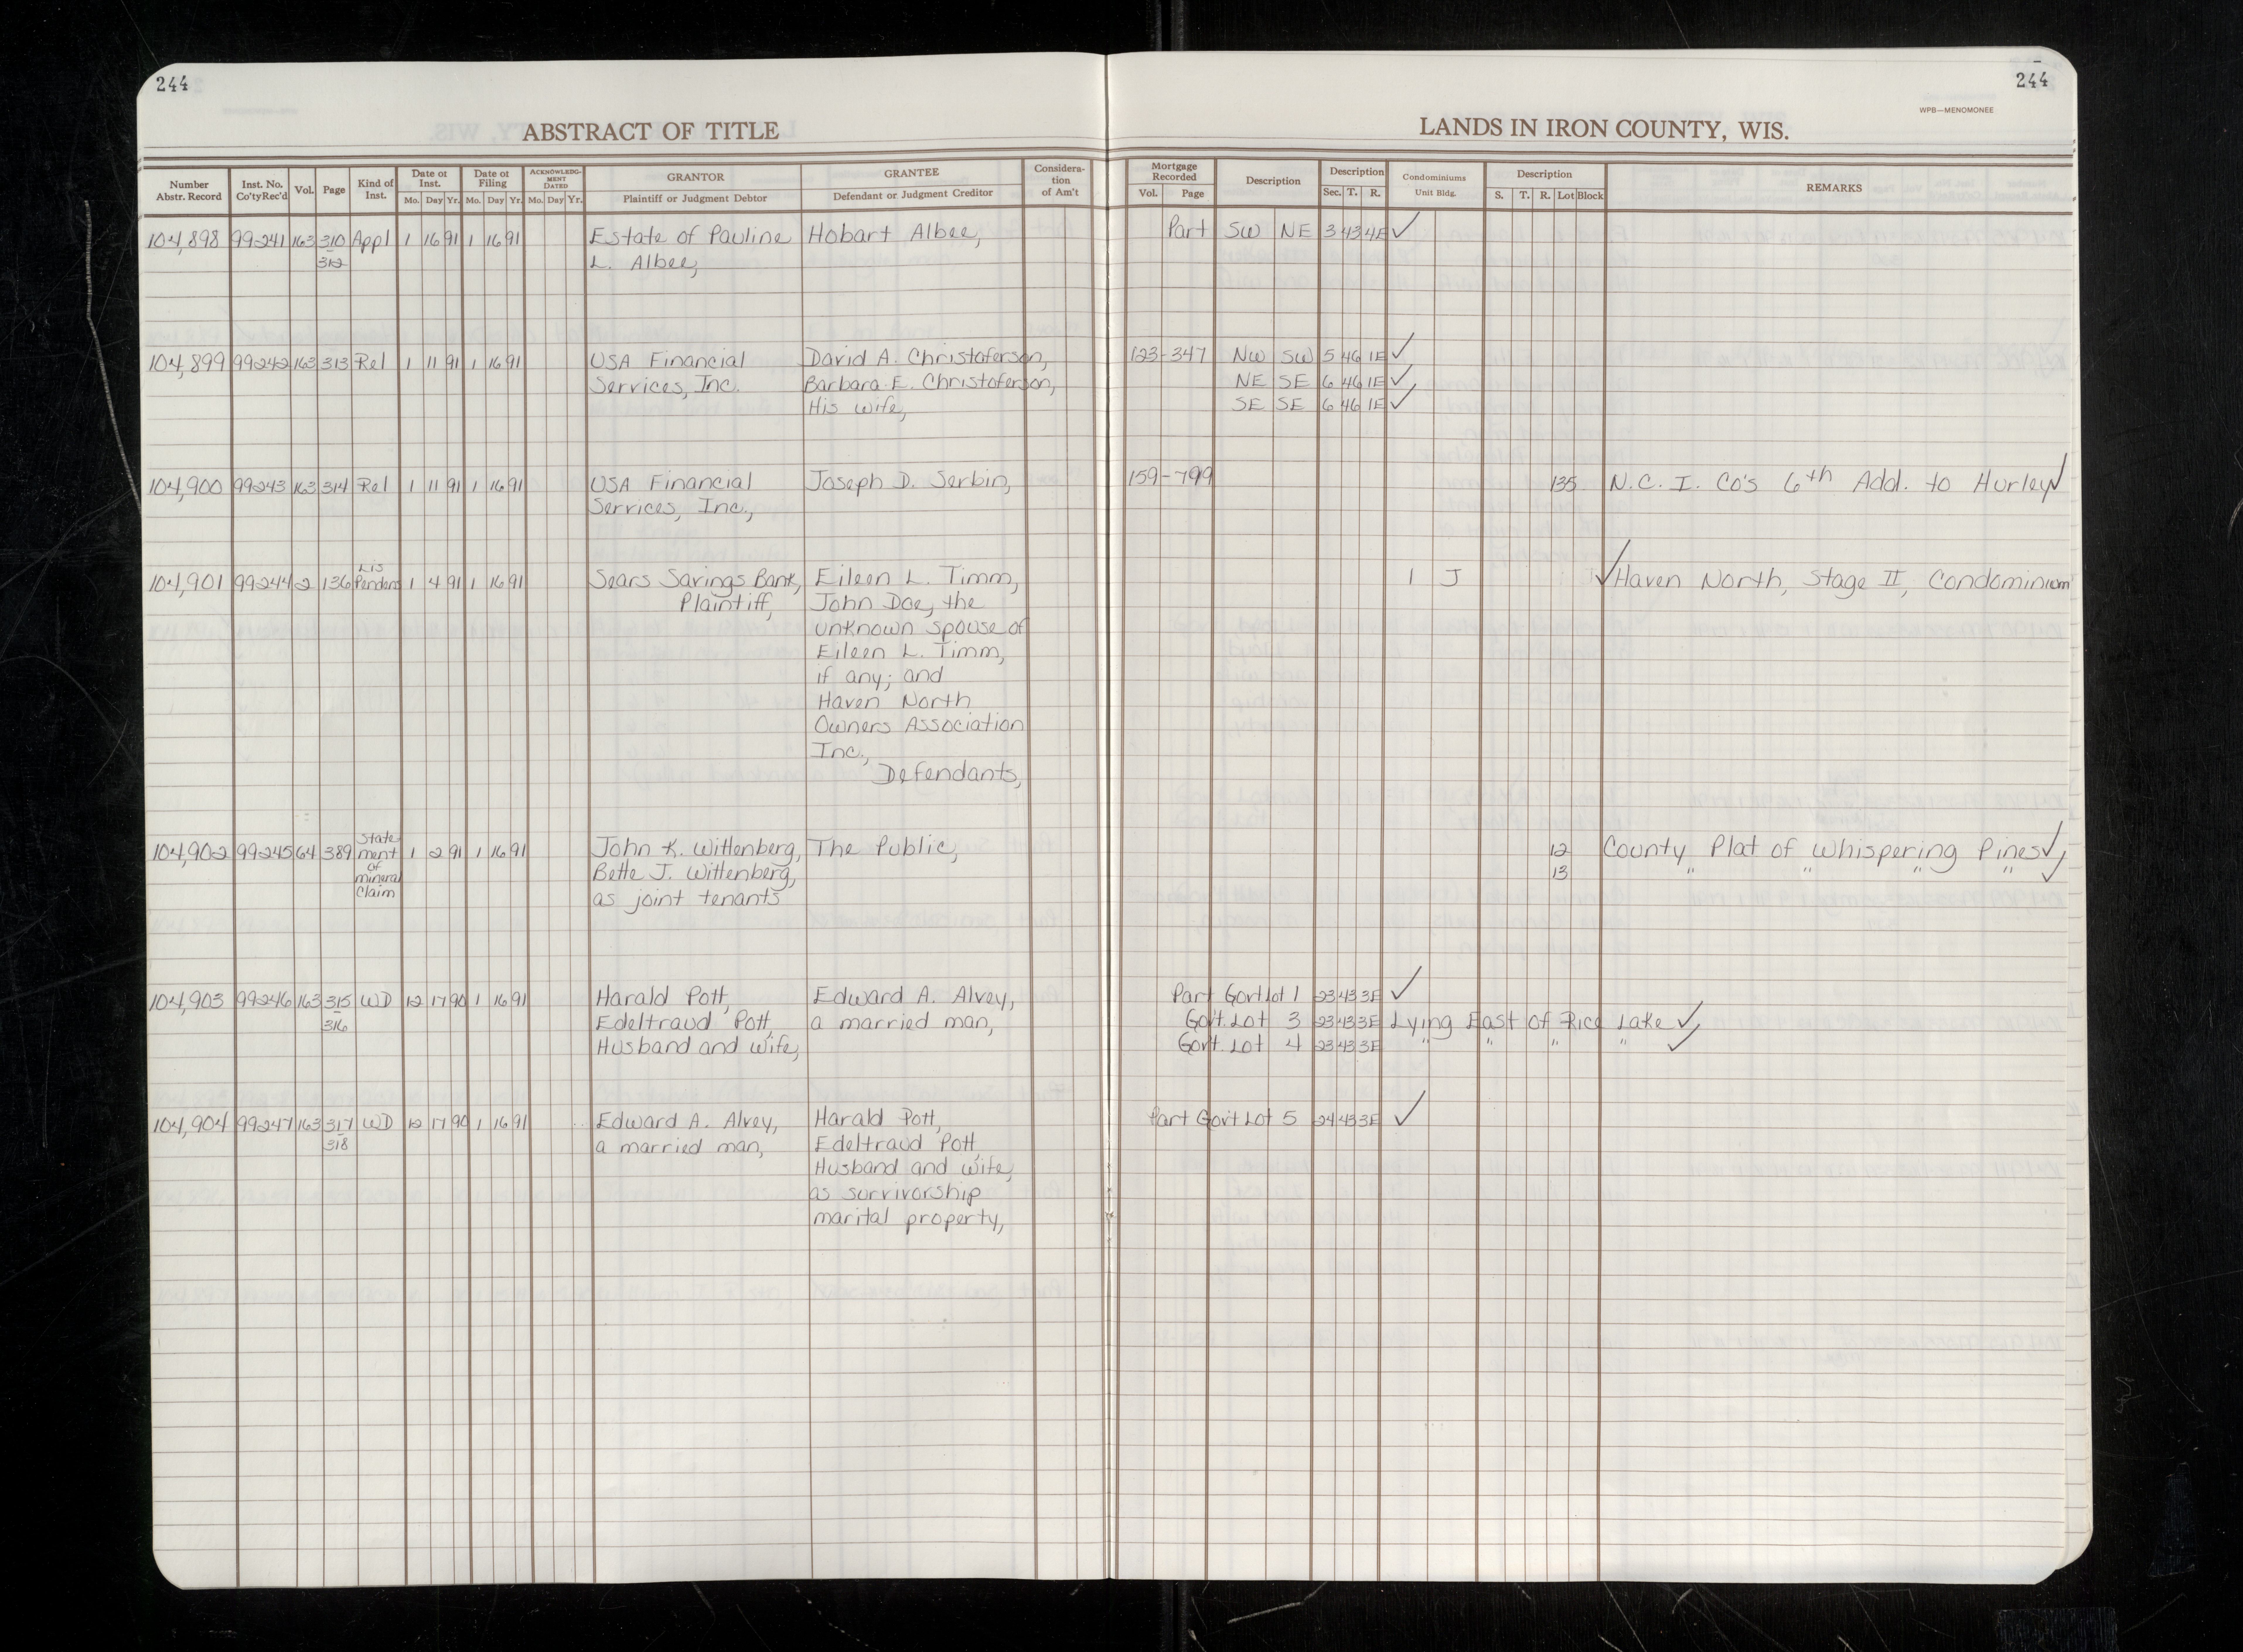 244
244
WPB—MENOMONEE
ABSTRACT OF TITLE
LANDS IN IRON COUNTY, WIS.
Number Abstr. Record | Inst. No. Co'ty Rec'd | Vol. | Page | Kind of Inst. | Date of Inst. Mo. Day Yr. | Date of Filing Mo. Day Yr. | ACKNOWLEDG-MENT DATED Mo. Day Yr. | GRANTOR Plaintiff or Judgment Debtor | GRANTEE Defendant or Judgment Creditor | Considera-tion of Am't | Mortgage Recorded Vol. Page | Description | Description Sec. T. R. | Condominiums Unit Bldg. | Description S. T. R. Lot Block | REMARKS
104,898 99-241 163 310 Appl 1 16 91 1 16 91 Estate of Pauline Hobart Albee, Part SW NE 3 43 4E ✓
312 L. Albee,
104,899 99-242 163 313 Rel 1 11 91 1 16 91 USA Financial David A. Christoferson, 123-347 NW SW 5 46 1E ✓
Services, Inc. Barbara E. Christoferson, NE SE 6 46 1E ✓
His wife, SE SE 6 46 1E ✓
104,900 99-243 163 314 Rel 1 11 91 1 16 91 USA Financial Joseph D. Serbin, 159-799 135 N.C.I. Co's 6th Add. to Hurley ✓
Services, Inc.,
Lis
104,901 99-244 2 136 Pendens 1 4 91 1 16 91 Sears Savings Bank, Eileen L. Timm, 1 J ✓ Haven North, Stage II, Condominium
Plaintiff, John Doe, the
unknown spouse of
Eileen L. Timm,
if any; and
Haven North
Owners Association
Inc.,
Defendants,
State-
104,902 99-245 64 389 ment 1 2 91 1 16 91 John K. Wittenberg, The Public, 12 County Plat of Whispering Pines ✓,
of
mineral Bette J. Wittenberg, 13 " " " " ✓
Claim as joint tenants
104,903 99-246 163 315 WD 12 17 90 1 16 91 Harald Pott, Edward A. Alvey, Part Govt Lot 1 23 43 3E ✓
316 Edeltraud Pott, a married man, Govt. Lot 3 23 43 3E Lying East of Rice Lake ✓,
Husband and Wife, Govt. Lot 4 23 43 3E " " " " ✓
104,904 99-247 163 317 WD 12 17 90 1 16 91 Edward A. Alvey, Harald Pott, Part Gov't Lot 5 24 43 3E ✓
318 a married man, Edeltraud Pott,
Husband and Wife,
as survivorship
marital property,